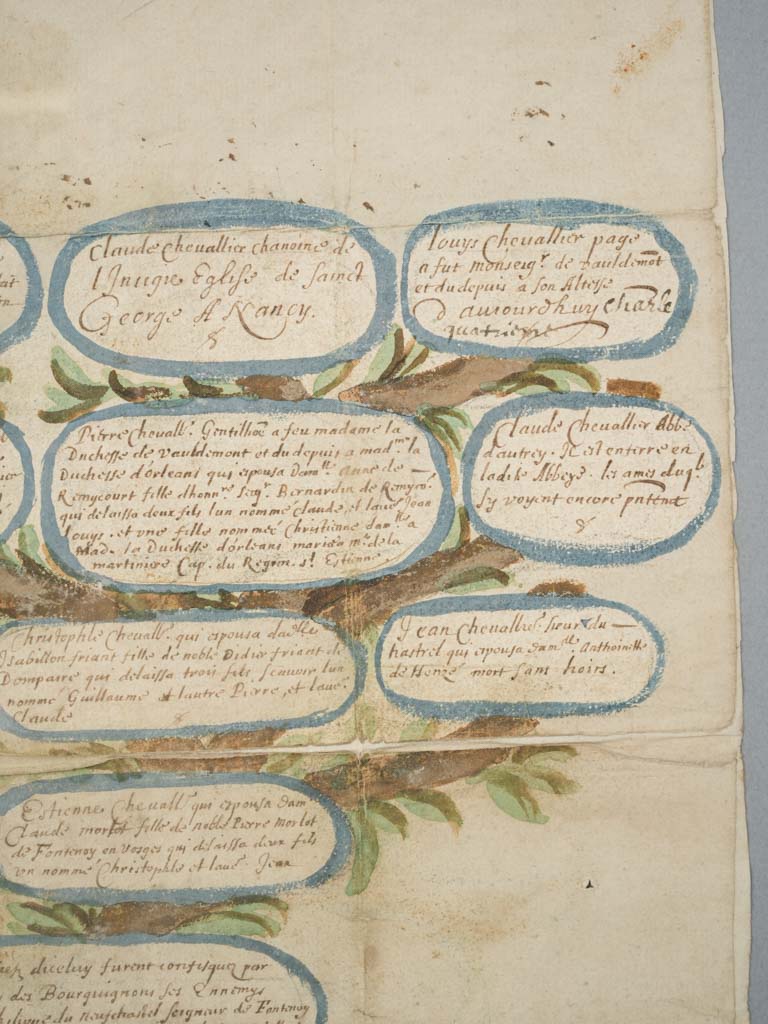 Claude Chevallier chanoine de
l'Insigne Eglise de Sainct
George A Nancy.
louys Chevallier page
a fut monseigr. de vauldemont
et du depuis a son Altesse
D'aujourdhuy Charle
quatriesme
Pierre Chevallr. Gentilhoē a feu madame la
Duchesse de vauldemont et du depuis a madme. la
Duchesse d'orleans qui espousa damlle Anne de
Remycourt fille d'honnre. seigr. Bernardin de Remycou.
qui delaissa deux fils l'un nommé Claude et laué Jean
louys. et une fille nommée Christienne damlle a
Mad. la Duchesse d'orleans mariée a mr. de la
martiniere Cap. du Regim. st. Estienne
Claude Chevallier Abbé
d'autrey. Il est enterré en
ladite Abbeye. les armes duql.
s'y voyent encore pntemt
Christophle Chevallr. qui espousa dalle
Isabillon friant fille de noble Didier friant de
Dompaire qui delaissa trois fils scauoir lun
nommé Guillaume et lautre Pierre et laué.
Claude
Jean Chevallier. sieur du
hastrel qui espousa damlle. Anthoinette
de Henzé mort sans hoirs.
Estienne Chevallr. qui espousa dam
Claude morlot fille de noble Pierre Morlot
de Fontenoy en vosges qui delaissa deux fils
vn nommé Christophle et laué. Jean
diceluy furent confisquez par
des Bourguignons ses Ennemys
du neufchastel seigneur de Fontenoy